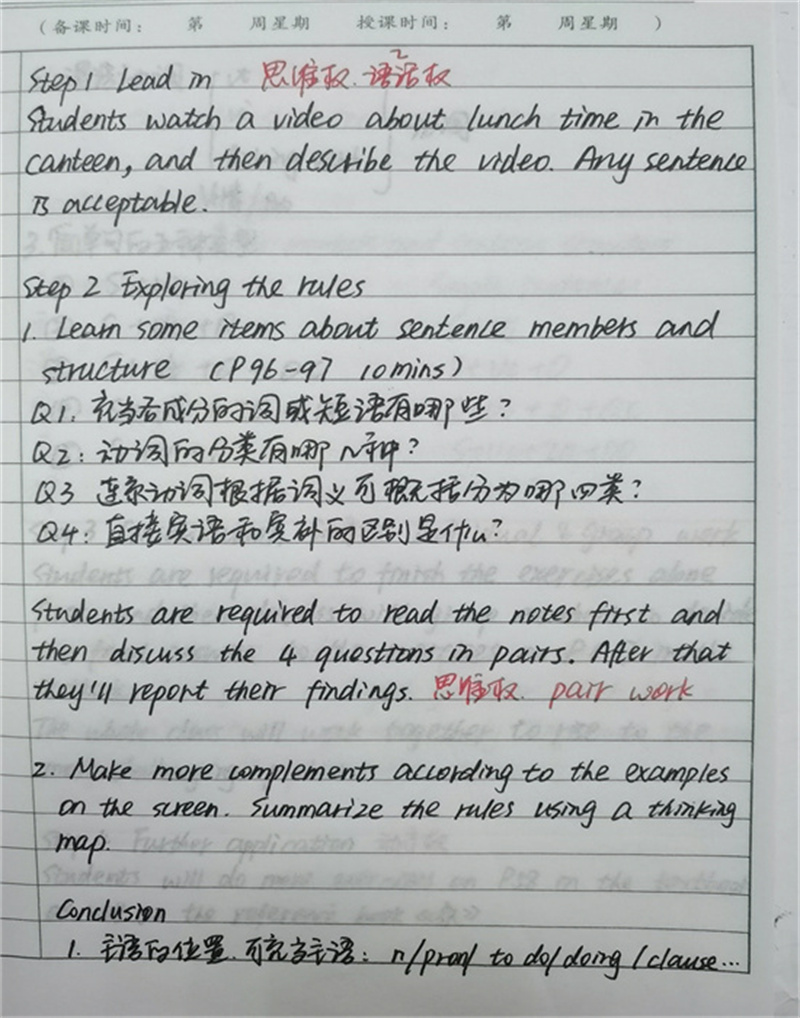 (备课时间: 第 周星期 授课时间: 第 周星期 )
Step 1 Lead in 思维权.语言权
Students watch a video about lunch time in the
canteen, and then describe the video. Any sentence
is acceptable.
Step 2 Exploring the rules
1. Learn some items about sentence members and
structure (P96-97 10mins)
Q1: 充当各成分的词或短语有哪些?
Q2: 动词的分类有哪几种?
Q3 连系动词根据词义可概括分为哪四类?
Q4: 直接宾语和宾补的区别是什么?
Students are required to read the notes first and
then discuss the 4 questions in pairs. After that
they'll report their findings. 思维权. pair work
2. Make more complements according to the examples
on the screen. Summarize the rules using a thinking
map.
Conclusion
1. 主语的位置.可充当主语: n/pron/ to do/doing/clause...